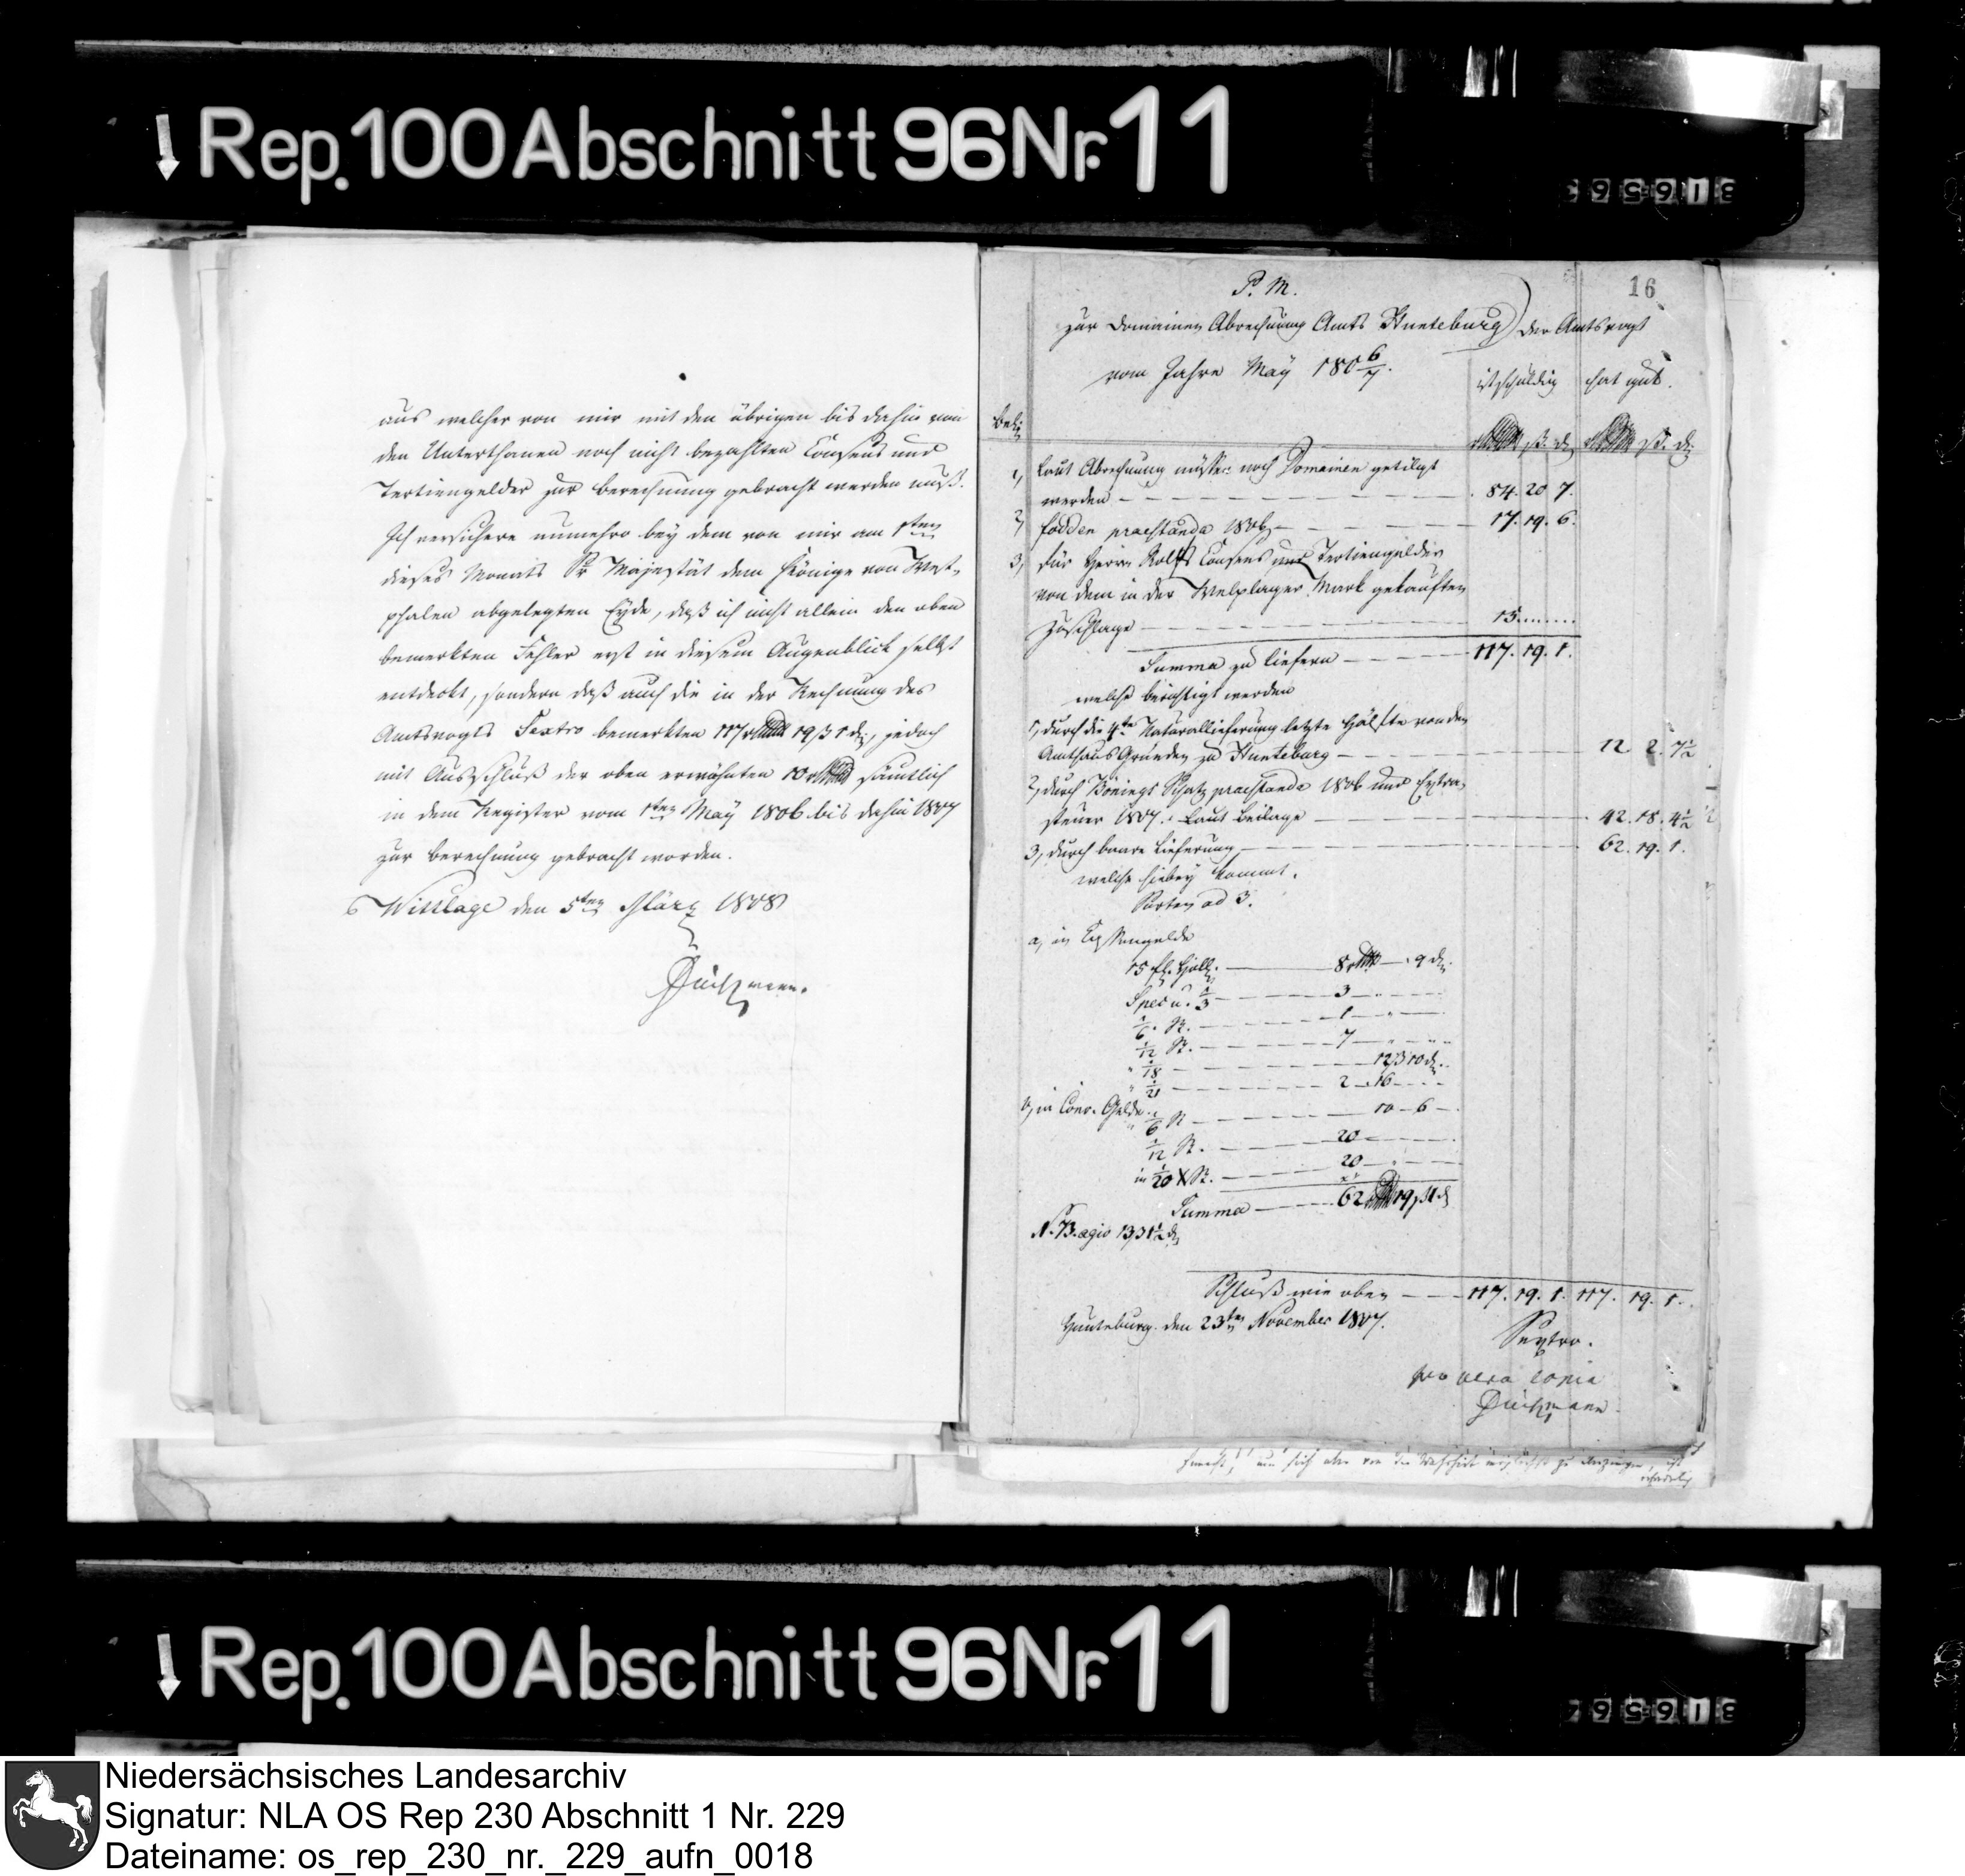 Rep. 100 Abschnitt 96 Nr. 11
316563
aus welcher von mir mit den übrigen bis dahin von
den Unterthanen noch nicht bezahlten Consens und
Tertiengelder zur berechnung gebracht werden muß.
Ich versichere nunmehro bey dem von mir am 1ten
dieses Monats Sr Majestät dem Könige von West-
phalen abgelegten Eyde, daß ich nicht allein den oben
bemerkten Fehler erst in diesem Augenblick selbst
entdeckt, sondern daß auch die in der Rechnung des
Amtsvogts Sextro bemerkten 117 19 ß 1 d, jedoch
mit Ausschluß der oben erwähnten 10 sämtlich
in dem Register vom 1ten May 1806 bis dahin 1807
zur berechnung gebracht worden.
Wittlage den 5ten März 1808
16
P. M.
zur Domainen Abrechnung Amts Hunteburg der Amtsvogt
vom Jahre May 1806/7.
ist schuldig hat gut.
1, Laut Abrechnung müssen noch Domainen getilgt
werden 84. 20 7.
2, praestanda 1806 17. 19. 6.
3, Für Herrn Rolfs Consens und Tertiengelder
von dem in der Welplager Mark gekauften
Zuschlage 15
Summa zu liefern 117. 19. 1.
welche berichtigt werden
1, durch die 4te Naturallieferung letzte Hälfte von den
Amthaus Gründen zu Hunteburg 12 2. 7½
2, durch Bönings Schatz praestanda 1806 und Extra-
steuer 1807. Laut Beilage 42. 18. 4½
3, durch baare Lieferung 62. 19. 1.
welche hiebey kommt.
Sorten ad 3.
a, in Cassengelde
15 fl. Holl. 8 9 d.
Spec u. ⅓ 3
1/6 St. 1
1/12 St. 7
1/18 12 ß 10 d.
1/21 2 16
b, in Conv. Gelde
1/6 St 10 6
1/12 St. 20
in 1/20 St. 20
Summa 62 19 ß 1 d
N.B. agio 13 ß 1½ d
Schluß wie oben 117. 19. 1. 117. 19. 1.
Hunteburg den 23ten November 1807.
Sextro.
pro vera copia
Rep. 100 Abschnitt 96 Nr. 11
Niedersächsisches Landesarchiv
Signatur: NLA OS Rep 230 Abschnitt 1 Nr. 229
Dateiname: os_rep_230_nr._229_aufn_0018